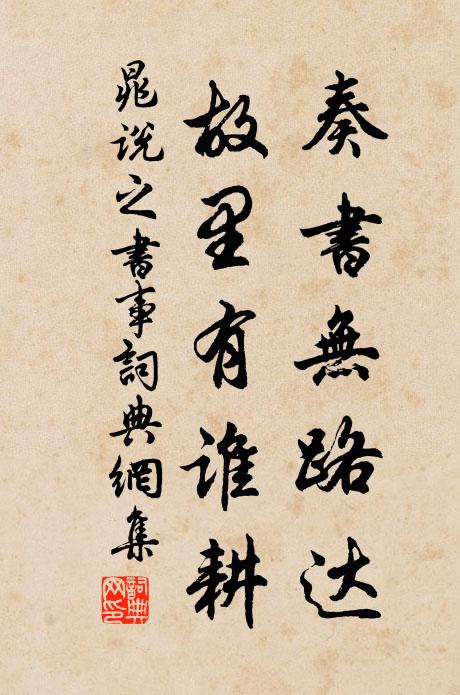 奏書無路达
故里有谁耕
晁说之書事詞典網集
詞典网印